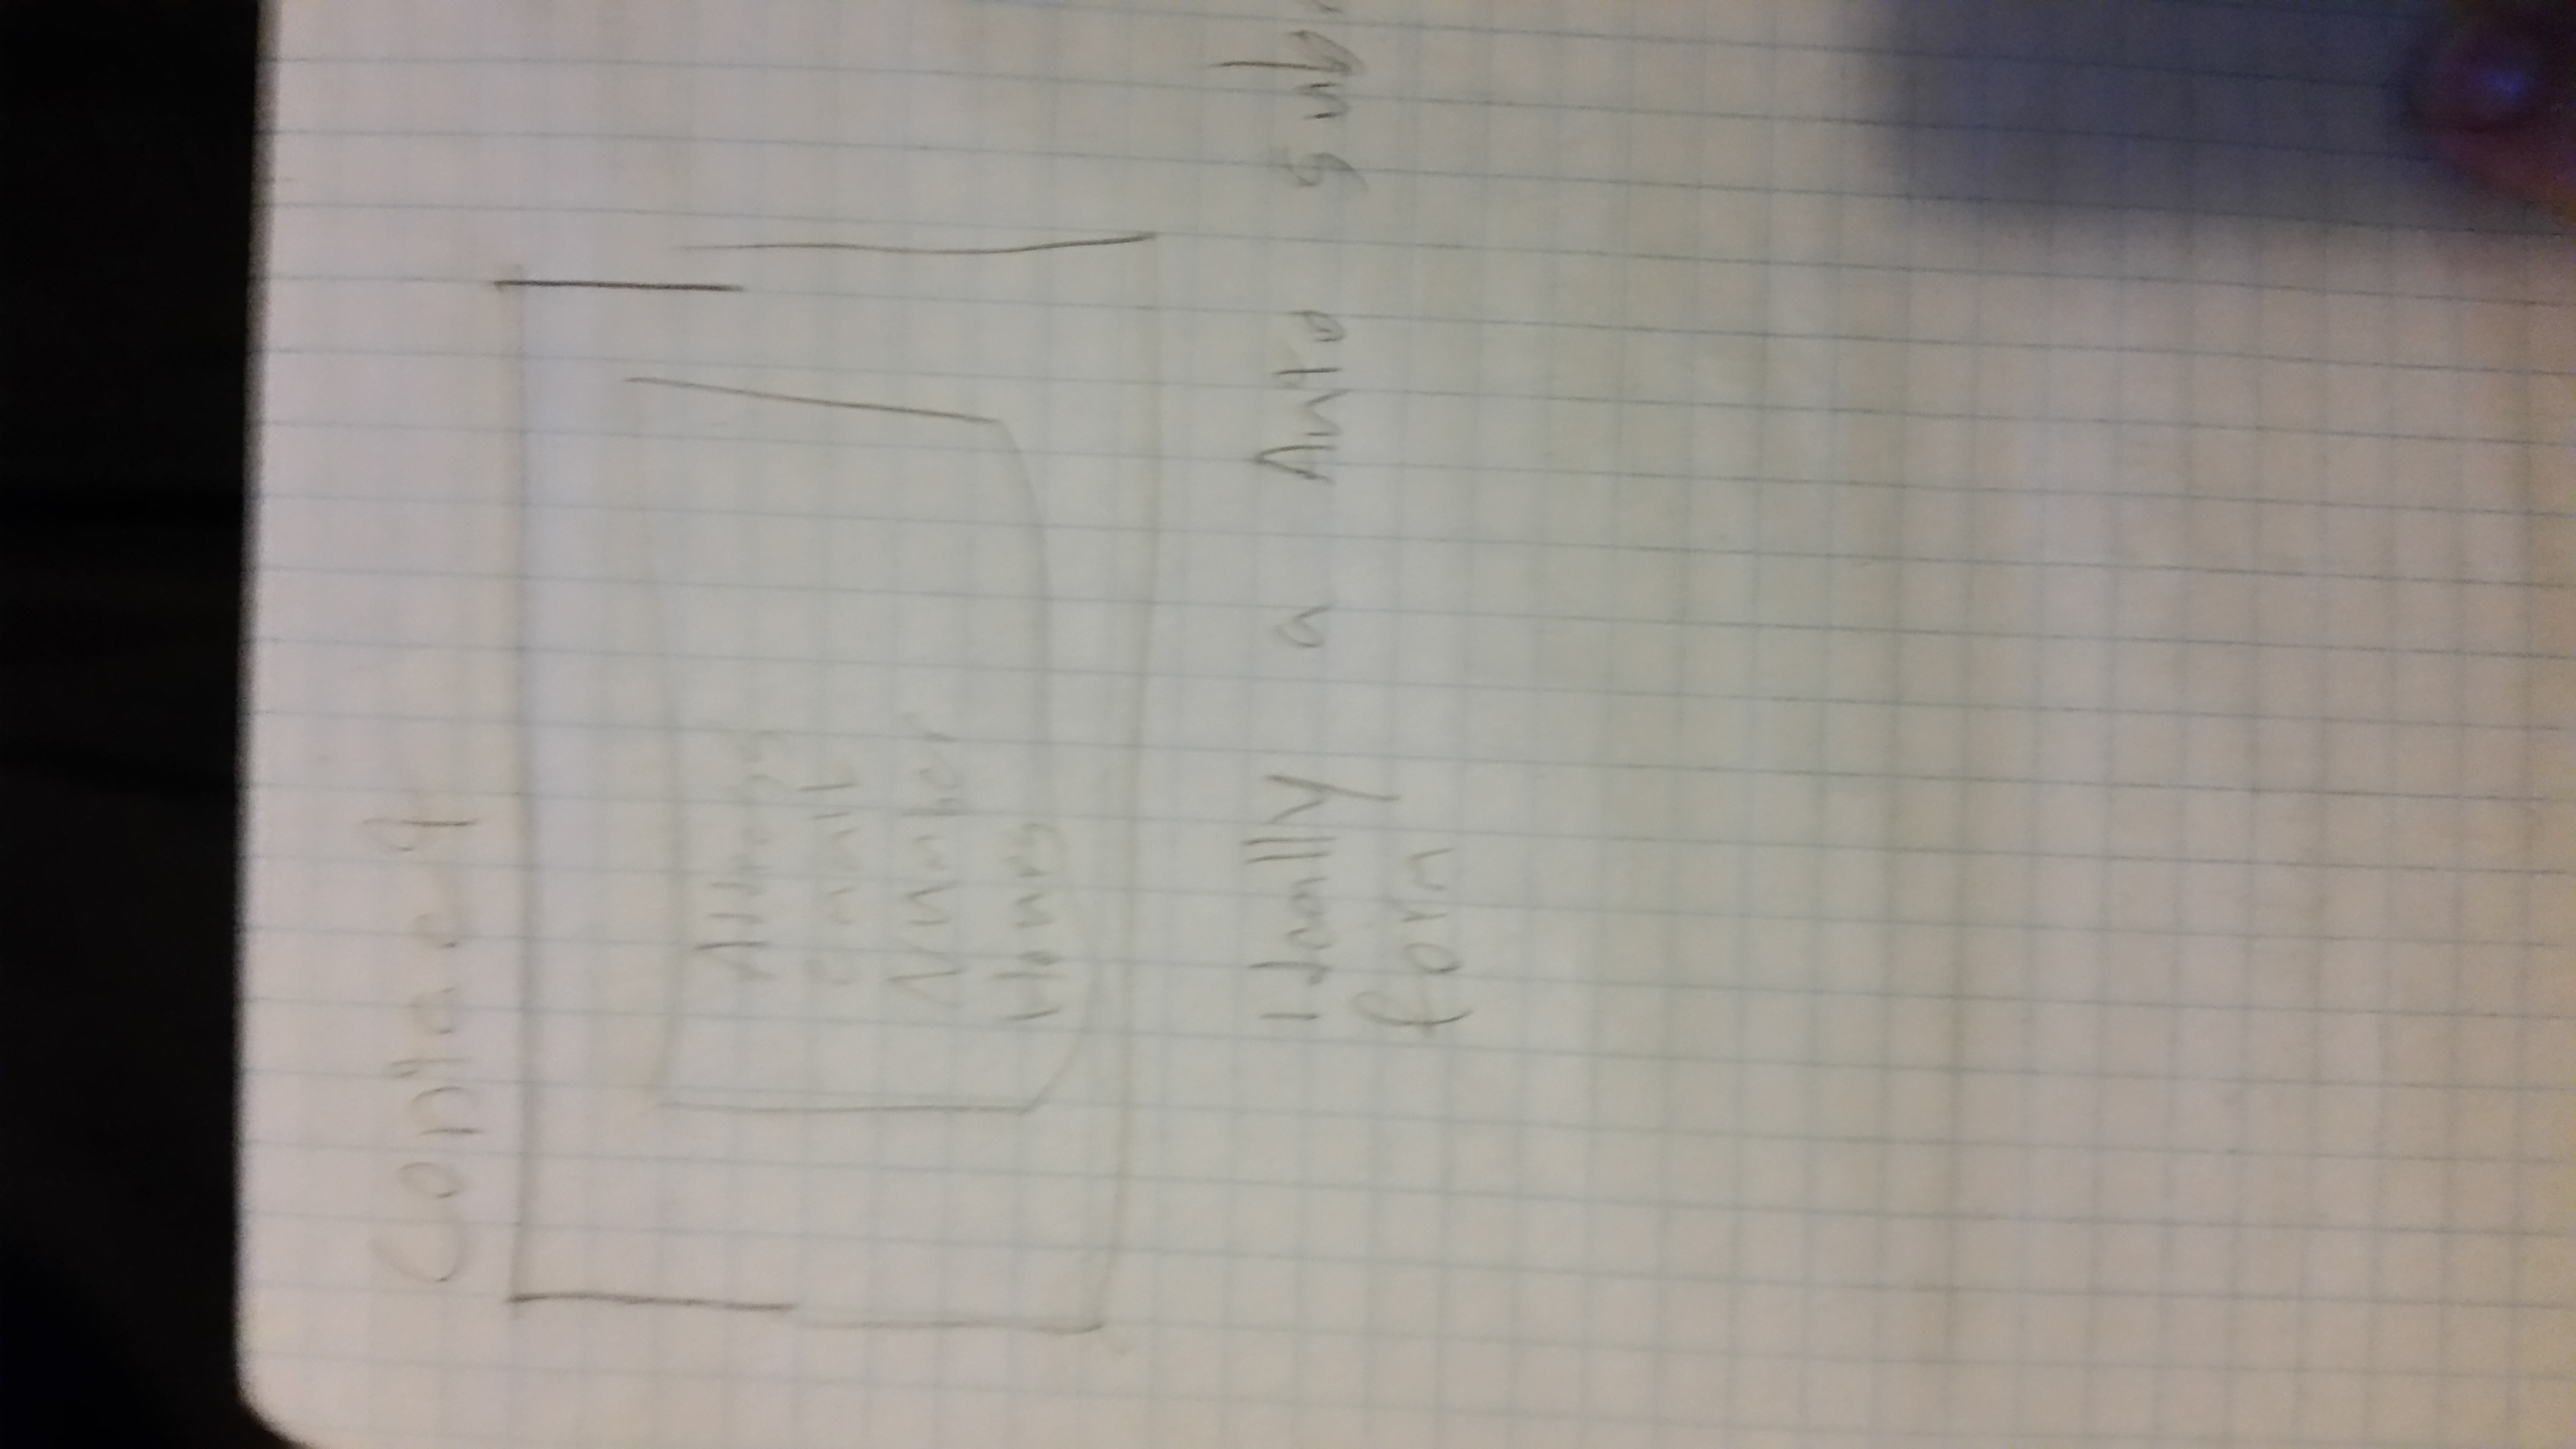 Contact
Address
Email
Number
Hours
Ideally a Auto Sub
form